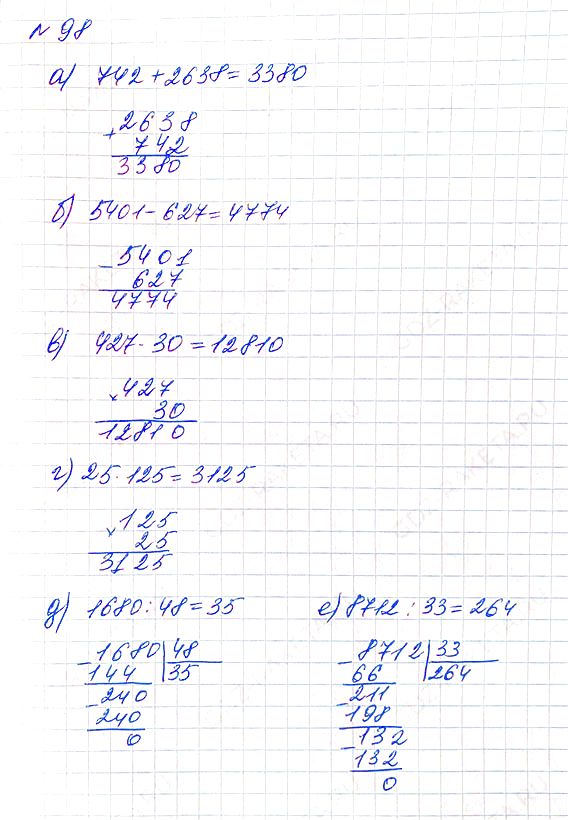 № 98
а) 742 + 2638 = 3380
+ 2638
742
3380
б) 5401 - 627 = 4774
- 5401
627
4774
в) 427 · 30 = 12810
× 427
30
12810
г) 25 · 125 = 3125
× 125
25
3125
д) 1680 : 48 = 35
- 1680 | 48
144 35
- 240
240
0
е) 8712 : 33 = 264
- 8712 | 33
66 264
- 211
198
- 132
132
0